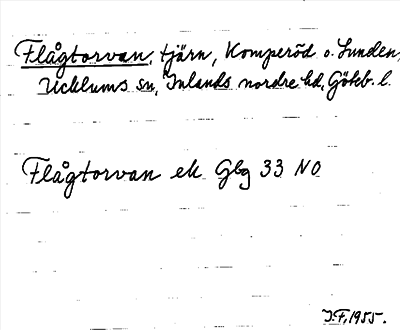 Flågtorvan, tjärn, Komperöd o. Sunden,
Ucklums sn, Inlands nordre hd, Göteb. l.
Flågtorvan ek Gbg 33 NO
J.F. 1955.